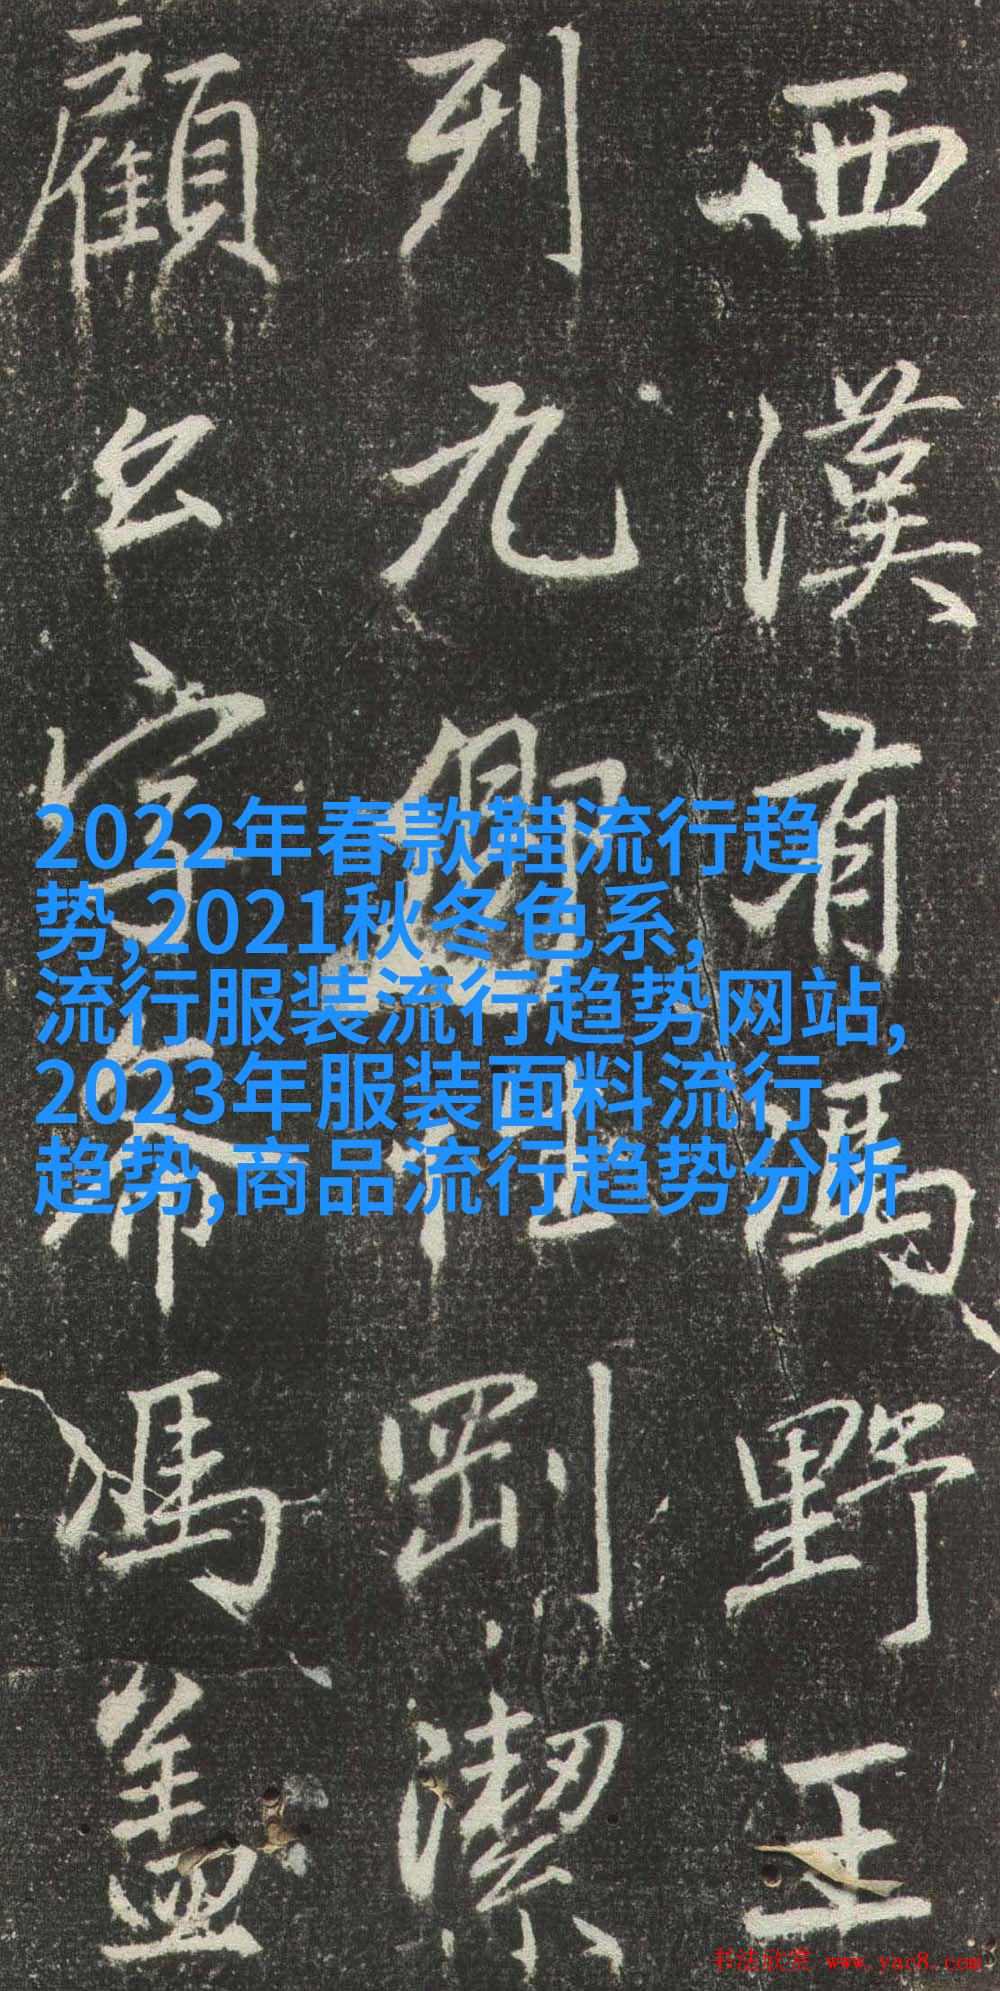 西漢有馮野王
列九卿剛潔
顧公字希馮盖
2022年春款鞋流行趋
势,2021秋冬色系,
流行服装流行趋势网站,
2023年服装面料流行
趋势,商品流行趋势分析
书法欣赏 www.yac8.com